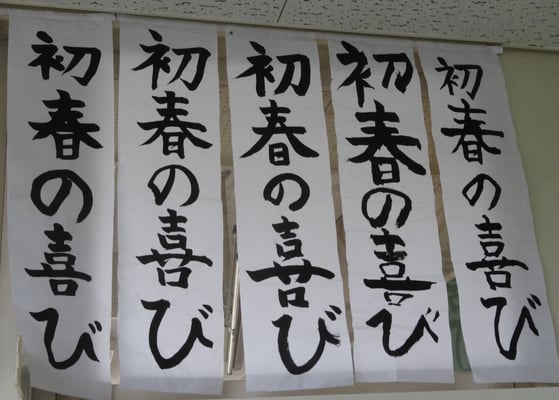 初春の喜び
初春の喜び
初春の喜び
初春の喜び
初春の喜び